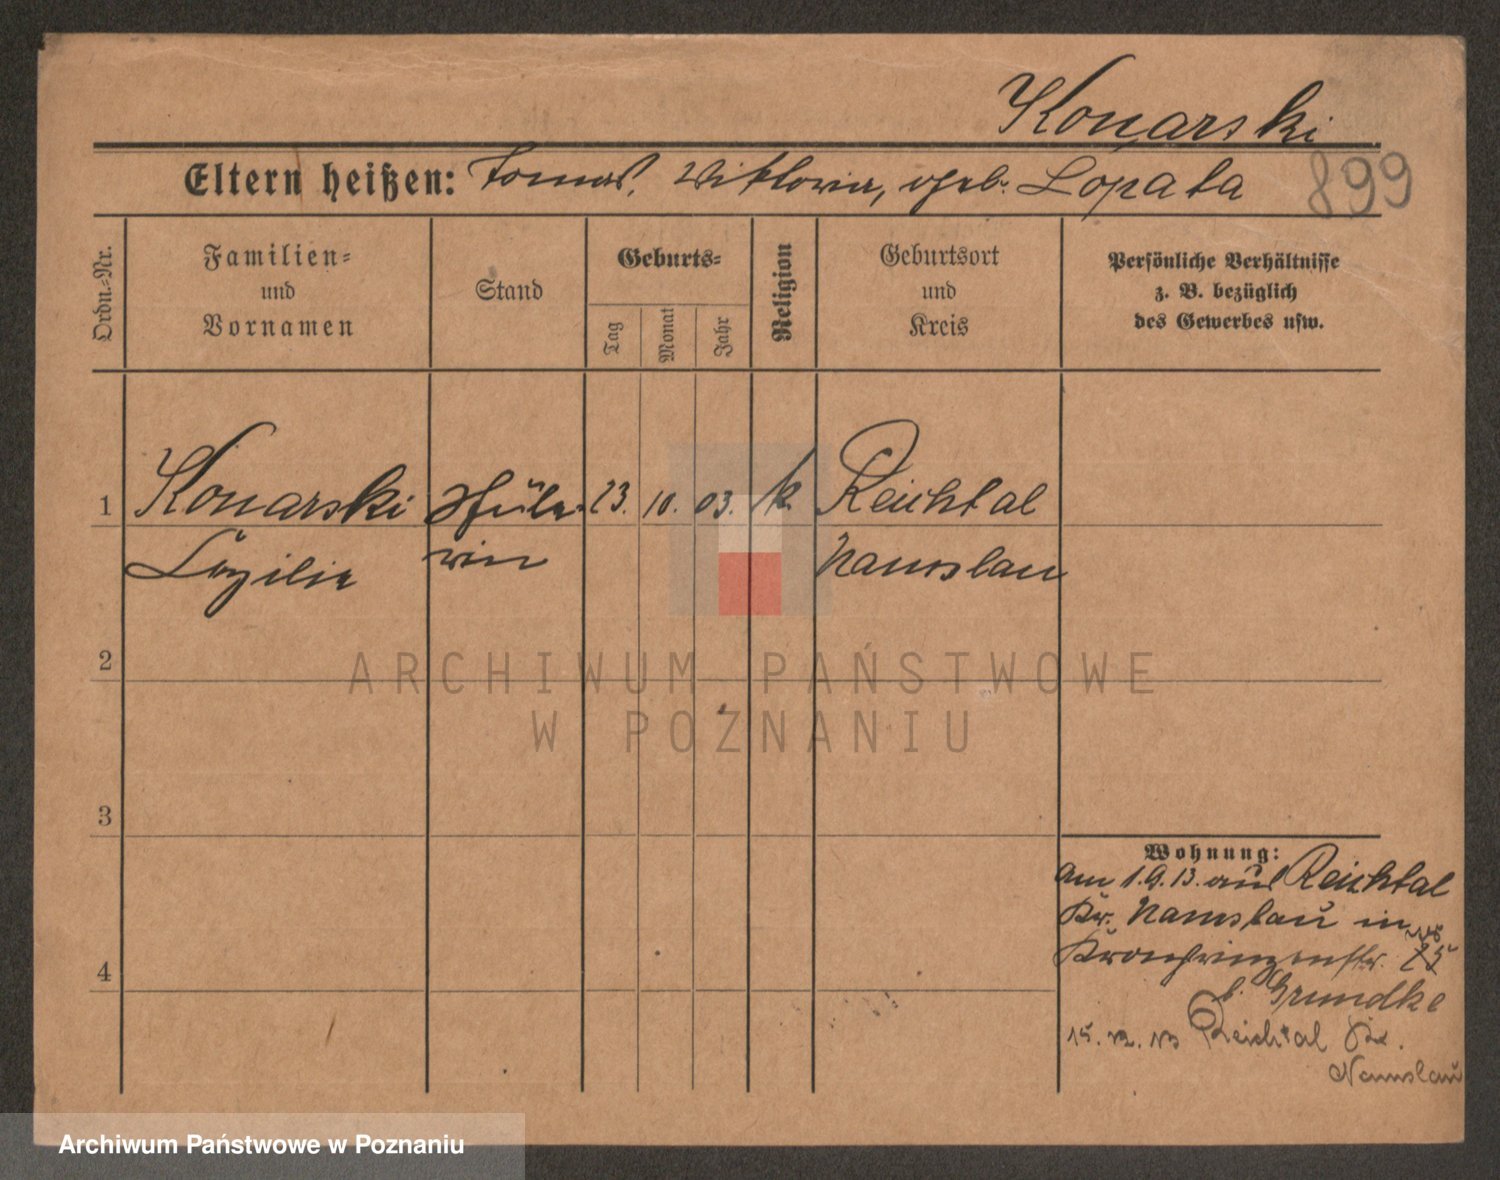 Konarski
Eltern heißen: Tomas, Wiktoria, geb. Lopata 899
Ordn.-Nr.
Familien-
und
Vornamen
Stand
Geburts-
Tag
Monat
Jahr
Religion
Geburtsort
und
Kreis
Persönliche Verhältnisse
z. B. bezüglich
des Gewerbes usw.
1 Konarski Schüle- 23. 10. 03. k. Reichtal
Cäzilie rin Namslau
2
3
4
Wohnung:
am 1.9.13. aus Reichtal
Kr. Namslau in
Kronprinzenstr.
b. Grundke
15. 12. 13 Reichtal Kr.
Namslau
ARCHIWUM PAŃSTWOWE
W POZNANIU
Archiwum Państwowe w Poznaniu